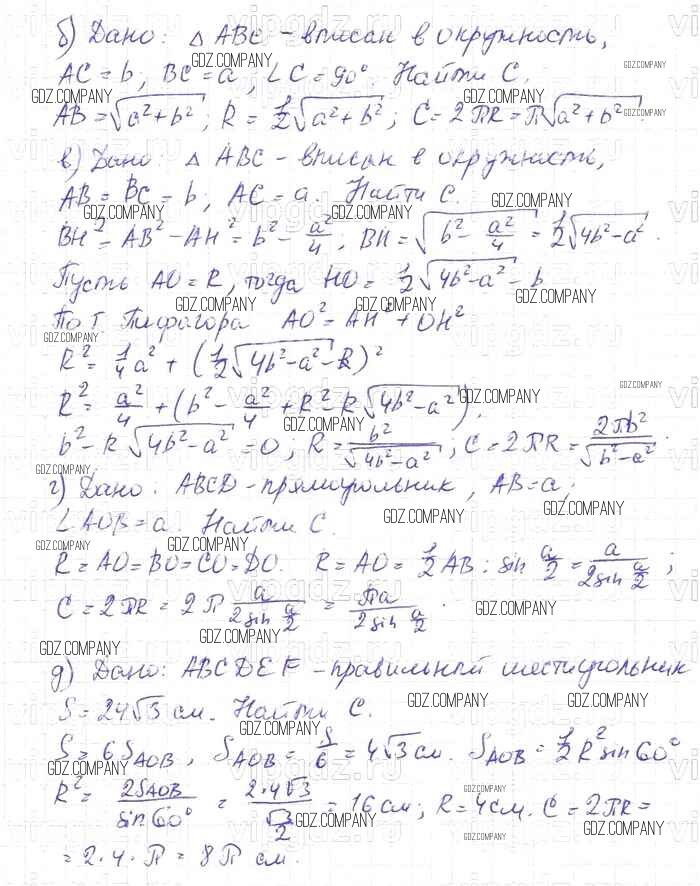 б) Дано: △ ABC - вписан в окружность,
AC = b, BC = a, ∠C = 90°. Найти C.
AB = √(a² + b²); R = 1/2 √(a² + b²); C = 2πR = π√(a² + b²).
в) Дано: △ ABC - вписан в окружность,
AB = BC = b, AC = a. Найти C.
BH² = AB² - AH² = b² - a²/4; BH = √(b² - a²/4) = 1/2 √(4b² - a²).
Пусть AO = R, тогда HO = 1/2 √(4b² - a²) - b
По т. Пифагора AO² = AH² + OH²
R² = 1/4 a² + (1/2 √(4b² - a²) - R)²
R² = a²/4 + (b² - a²/4 + R² - R √(4b² - a²)).
b² - R √(4b² - a²) = 0; R = b²/√(4b² - a²); C = 2πR = 2πb²/√(b² - a²).
г) Дано: ABCD - прямоугольник, AB = a;
∠AOB = a. Найти C.
R = AO = BO = CO = DO. R = AO = 1/2 AB : sin a/2 = a/(2 sin a/2);
C = 2πR = 2π a/(2 sin a/2) = πa/(2 sin a/2).
д) Дано: ABCDEF - правильный шестиугольник
S = 24√3 см. Найти C.
S = 6S AOB, S AOB = S/6 = 4√3 см. S AOB = 1/2 R² sin 60°
R² = 2S AOB/sin 60° = 2·4√3/(√3/2) = 16 см; R = 4 см. C = 2πR =
= 2·4·π = 8π см.
GDZ.COMPANY
vipgdz.ru